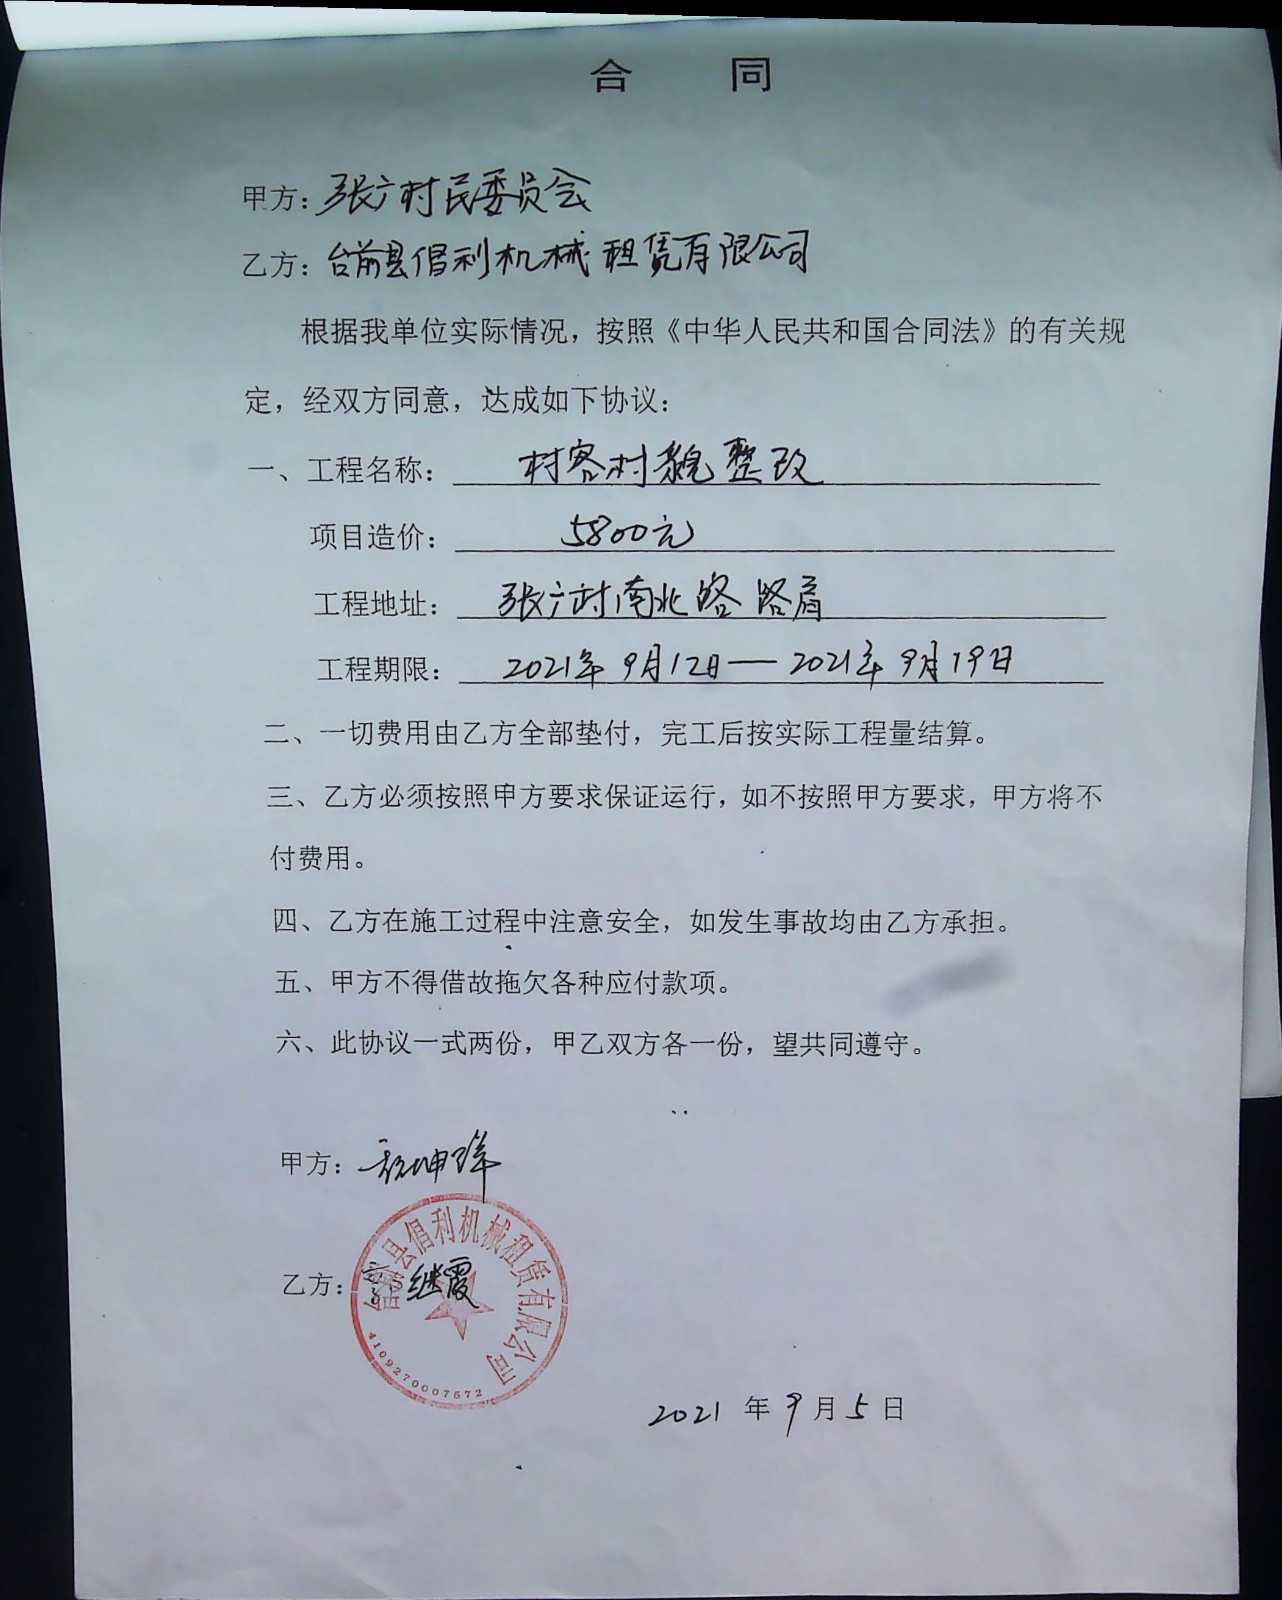 合 同
甲方：张广村民委员会
乙方：台前县倡利机械租赁有限公司
根据我单位实际情况，按照《中华人民共和国合同法》的有关规
定，经双方同意，达成如下协议：
一、工程名称： 村容村貌整改
项目造价： 5800元
工程地址： 张广村南北路路肩
工程期限： 2021年9月12日——2021年9月19日
二、一切费用由乙方全部垫付，完工后按实际工程量结算。
三、乙方必须按照甲方要求保证运行，如不按照甲方要求，甲方将不
付费用。
四、乙方在施工过程中注意安全，如发生事故均由乙方承担。
五、甲方不得借故拖欠各种应付款项。
六、此协议一式两份，甲乙双方各一份，望共同遵守。
甲方： 坤
台前县倡利机械租赁有限公司
乙方： 继霞
4109270007672
2021 年 9 月 5 日